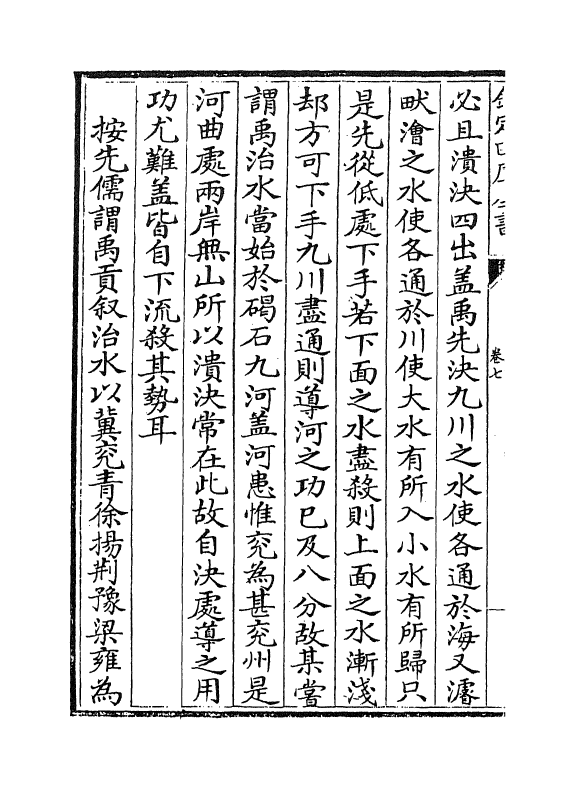 欽定四庫全書
卷七
必且潰決四出盖禹先決九川之水使各通於海又濬
畎澮之水使各通於川使大水有所入小水有所歸只
是先從低處下手若下面之水盡殺則上面之水漸淺
却方可下手九川盡通則導河之功已及八分故某嘗
謂禹治水當始於碣石九河盖河患惟兖為甚兖州是
河曲處兩岸無山所以潰決常在此故自決處導之用
功尤難盖皆自下流殺其勢耳
按先儒謂禹貢叙治水以冀兖青徐揚荆豫梁雍為